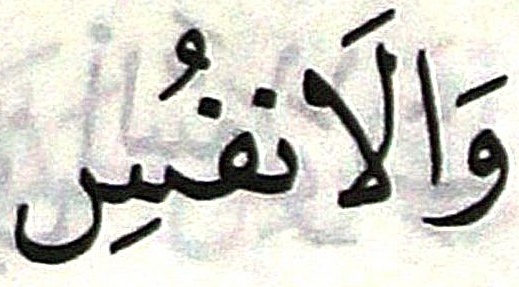 وَالاَنفُسِ